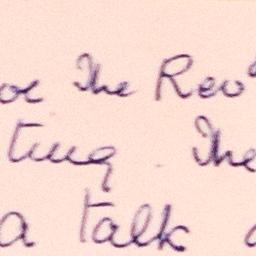 The Revd
ting. The
a talk